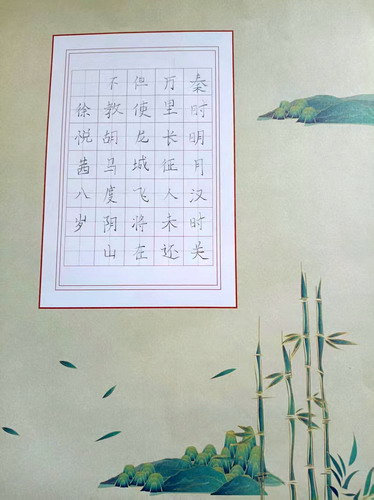 秦时明月汉时关
万里长征人未还
但使龙城飞将在
不教胡马度阴山
徐悦茜八岁